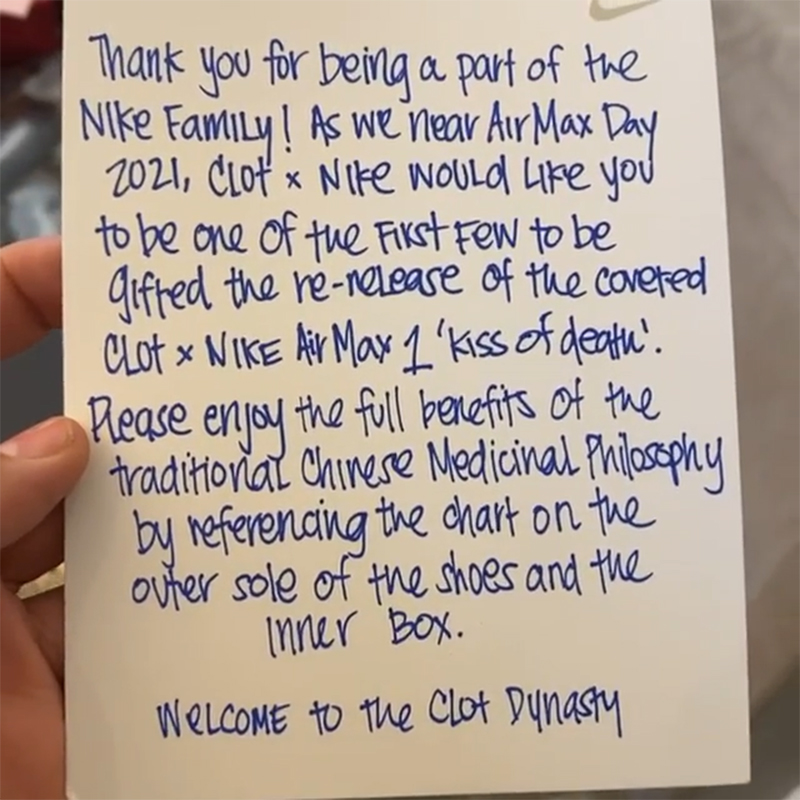 Thank you for being a part of the
Nike Family! As we near Air Max Day
2021, Clot x Nike would like you
to be one of the first few to be
gifted the re-release of the coveted
Clot x NIKE Air Max 1 'kiss of death'.
Please enjoy the full benefits of the
traditional Chinese Medicinal Philosophy
by referencing the chart on the
outer sole of the shoes and the
Inner Box.
Welcome to the Clot Dynasty